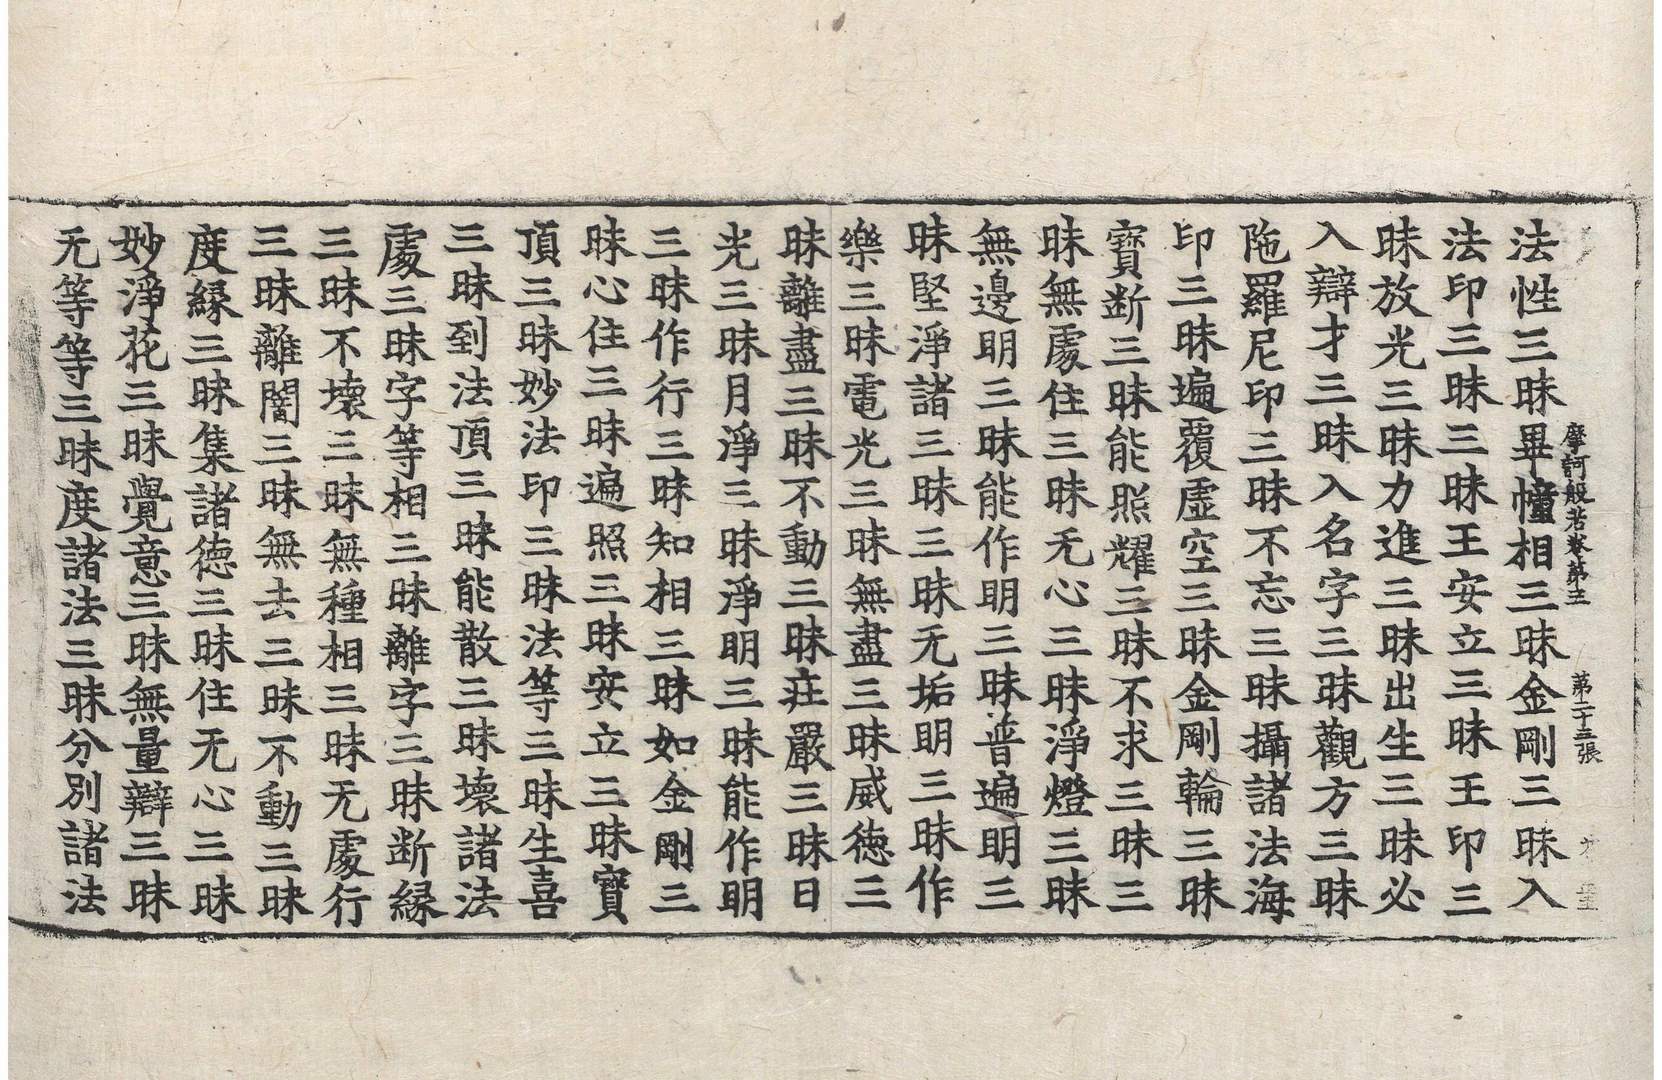 摩訶般若卷第五 第二十五張
法性三昧畢幢相三昧金剛三昧入
法印三昧三昧王安立三昧王印三
昧放光三昧力進三昧出生三昧必
入辯才三昧入名字三昧觀方三昧
陁羅尼印三昧不忘三昧攝諸法海
印三昧遍覆虛空三昧金剛輪三昧
寶断三昧能照耀三昧不求三昧三
昧無處住三昧无心三昧淨燈三昧
無邊明三昧能作明三昧普遍明三
昧堅淨諸三昧三昧无垢明三昧作
樂三昧電光三昧無盡三昧威德三
昧離盡三昧不動三昧莊嚴三昧日
光三昧月淨三昧淨明三昧能作明
三昧作行三昧知相三昧如金剛三
昧心住三昧遍照三昧安立三昧寶
頂三昧妙法印三昧法等三昧生喜
三昧到法頂三昧能散三昧壞諸法
處三昧字等相三昧離字三昧断緣
三昧不壞三昧無種相三昧无處行
三昧離闇三昧無去三昧不動三昧
度緣三昧集諸德三昧住无心三昧
妙淨花三昧覺意三昧無量辯三昧
无等等三昧度諸法三昧分別諸法